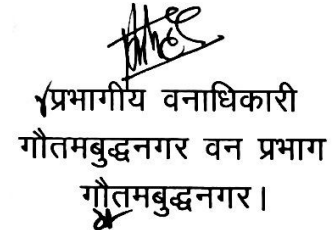 प्रभागीय वनाधिकारी
गौतमबुद्धनगर वन प्रभाग
गौतमबुद्धनगर।